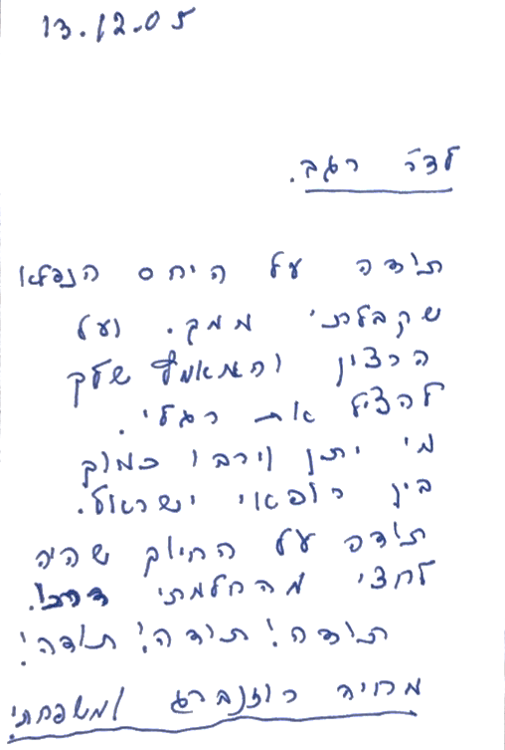 13.12.05
לדר רגב.
תודה על היחס הנפלא
שקבלתי ממך. ועל
הרצון והמאמץ שלך
להציל את רגלי.
מי יתן וירבו כמוך
בין רופאי ישראל.
תודה על החיוך שהיה
לחצי מהחלמתי
תודה! תודה! תודה!
מריה רוזנברג ומשפחתי